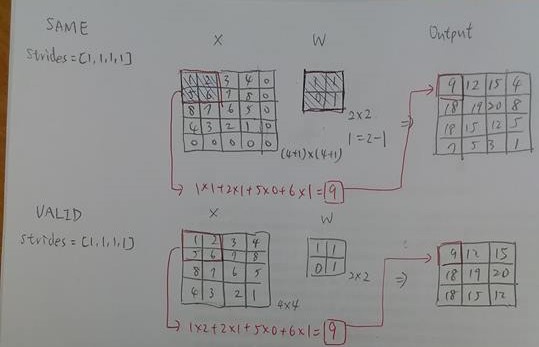 SAME
strides = [1, 1, 1, 1]
X
W
Output
1 2 3 4 0
5 6 7 8 0
8 7 6 5 0
4 3 2 1 0
0 0 0 0 0
(4+1)x(4+1)
1 1
0 1
2x2
1 = 2-1
⇒
9 12 15 4
18 19 20 8
18 15 12 5
7 5 3 1
1x1+2x1+5x0+6x1=9
VALID
strides = [1, 1, 1, 1]
X
W
1 2 3 4
5 6 7 8
8 7 6 5
4 3 2 1
4x4
1 1
0 1
2x2
⇒
9 12 15
18 19 20
18 15 12
1x2+2x1+5x0+6x1=9